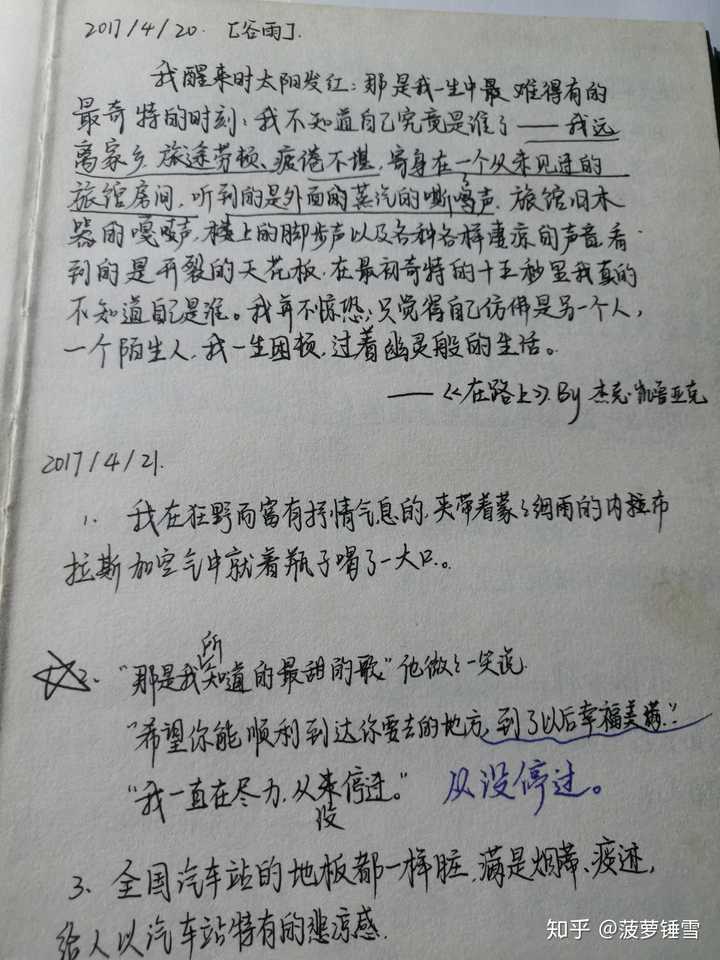 2017/4/20. [谷雨].
我醒来时太阳发红：那是我一生中最难得有的
最奇特的时刻：我不知道自己究竟是谁了——我远
离家乡，旅途劳顿、疲倦不堪，寄身在一个从未见过的
旅馆房间，听到的是外面的蒸汽的嘶鸣声，旅馆旧木
器的嘎吱声，楼上的脚步声以及各种各样凄凉的声音，看
到的是开裂的天花板，在最初奇特的十五秒里我真的
不知道自己是谁。我并不惊恐，只觉得自己仿佛是另一个人，
一个陌生人，我一生困顿，过着幽灵般的生活。
——《在路上》By 杰克·凯鲁亚克
2017/4/21.
1. 我在狂野而富有抒情气息的，夹带着蒙々细雨的内拉布
拉斯加空气中就着瓶子喝了一大口。
2. “那是我所知道的最甜的歌。”他微々一笑说.
“希望你能顺利到达你要去的地方，到了以后幸福美满。”
“我一直在尽力，从来没停过。” 从没停过。
3、全国汽车站的地板都一样脏，满是烟蒂、痰迹，
给人以汽车站特有的悲凉感.
知乎 @菠萝锤雪